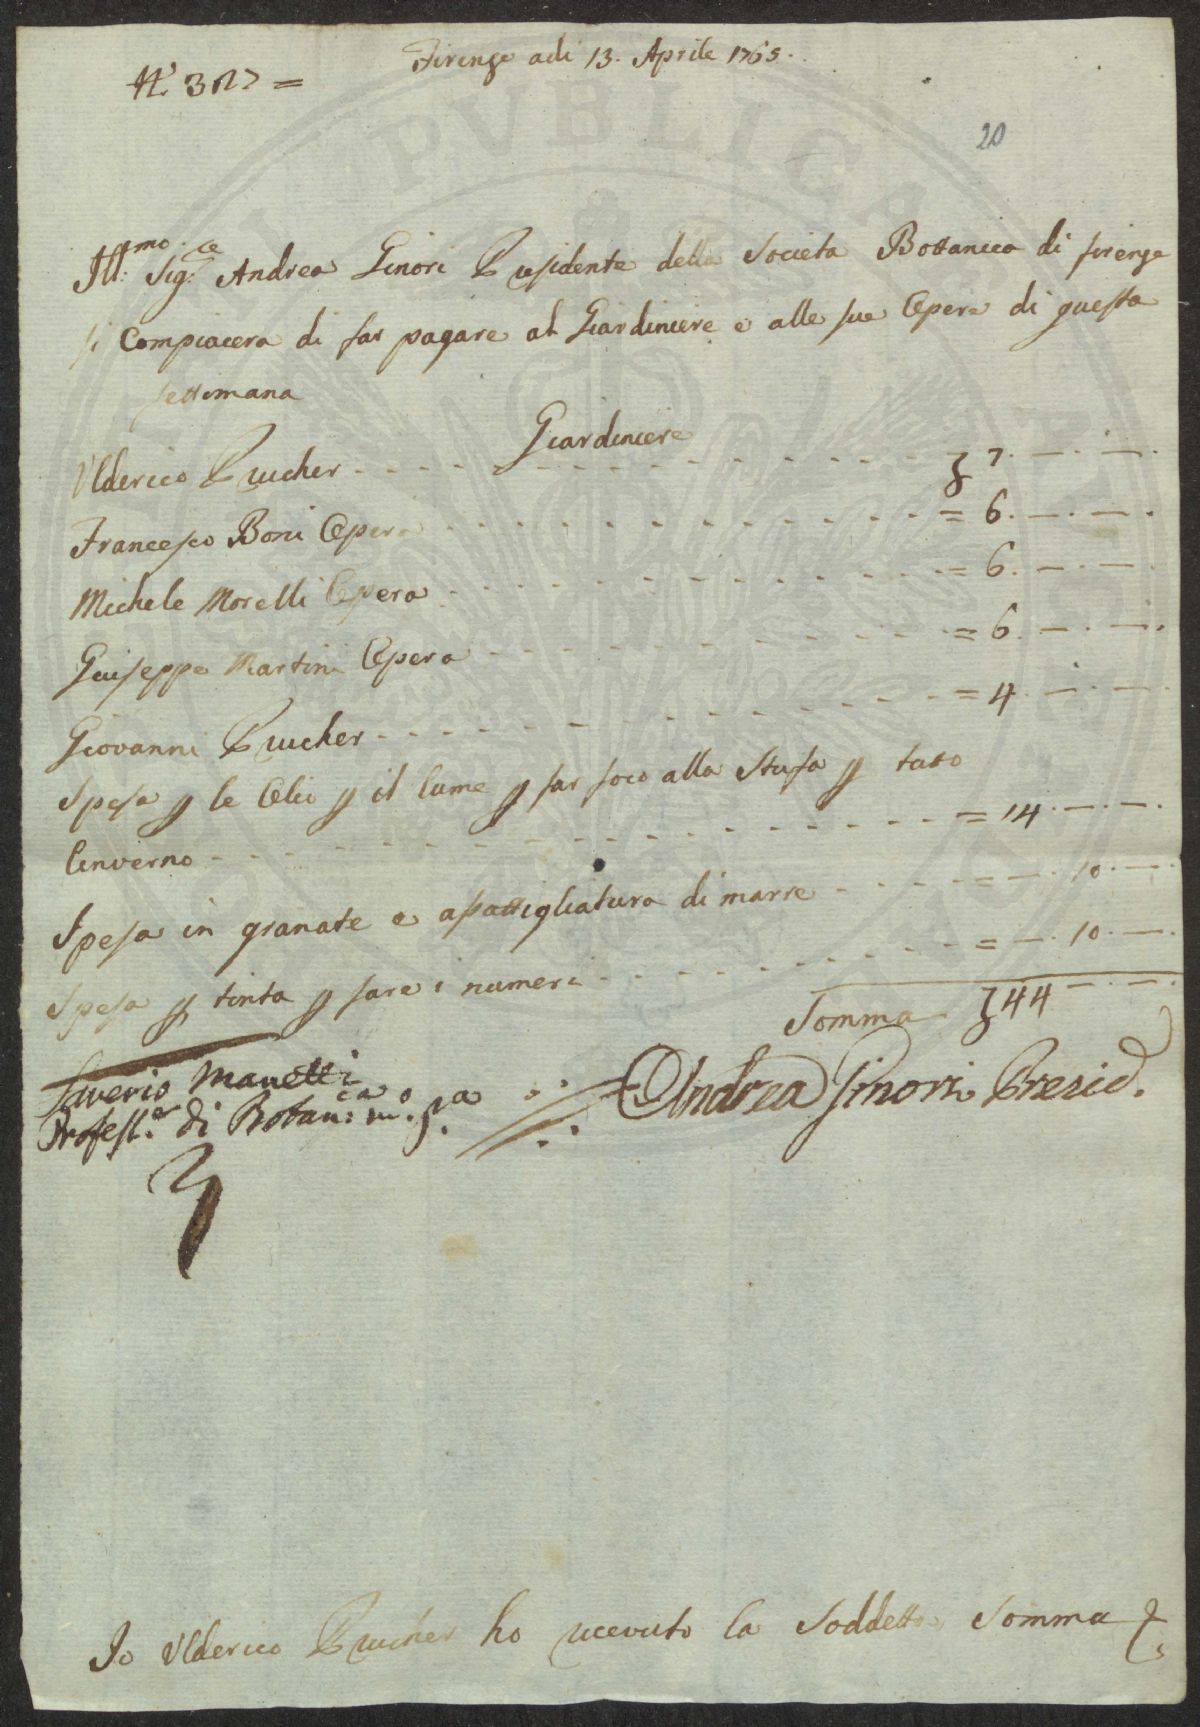 Firenze adi 13. Aprile 1765.
20
Ill:mo Sig:re Andrea Ginori Presidente della Società Bottanica di firenze
si Compiacera di far pagare al Giardiniere e alle sue Opere di questa
settimana
Ulderico Prucher Giardiniere 7. — . — .
Francesco Boni Opera = 6. — . — .
Michele Morelli Opera = 6. — . — .
Giuseppe Martini Opera = 6. — . — .
Giovanni Prucher = 4. — . — .
Spesa p le Olio p il lume p far foco alla Stufa p tuto
linverno = 14. — . — .
Spesa in granate e apattigliatura di marre = — . 10. — .
Spesa p tinta p fare i numeri = — . 10. — .
Somma 44 — . — .
Saverio Manetti
Profess:e di Botan:ca
Andrea Ginori Presid.
Io Ulderico Prucher ho ricevuto la Soddetta Somma